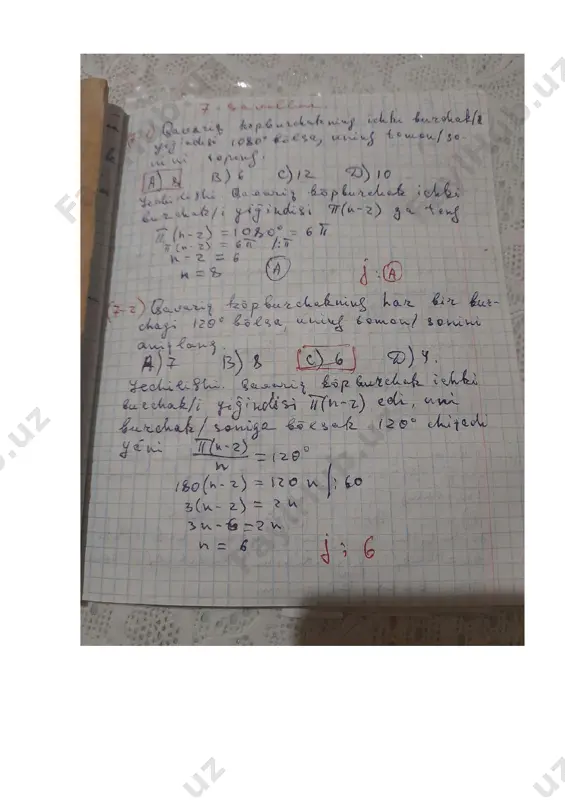 7-savollar.
(7-1) Qavariq ko'pburchakning ichki burchak/i
yig'indisi 1080° bo'lsa, uning tomon/so-
nini toping.
A) 8 B) 6 C) 12 D) 10
Yechilishi Qavariq ko'pburchak ichki
burchak/i yig'indisi π(n-2) ga teng
π(n-2) = 1080° = 6π
π(n-2) = 6π /:π
n-2 = 6
n = 8 (A) j: (A)
(7-2) Qavariq ko'pburchakning har bir bur-
chagi 120° bo'lsa, uning tomon/sonini
aniqlang.
A) 7 B) 8 C) 6 D) 9.
Yechilishi. Qavariq ko'pburchak ichki
burchak/i yig'indisi π(n-2) edi, uni
burchak/soniga bo'lsak 120° chiqadi
ya'ni π(n-2)/n = 120°
180(n-2) = 120n /:60
3(n-2) = 2n
3n-6=2n
n = 6 j: 6
Fayllhub.uz